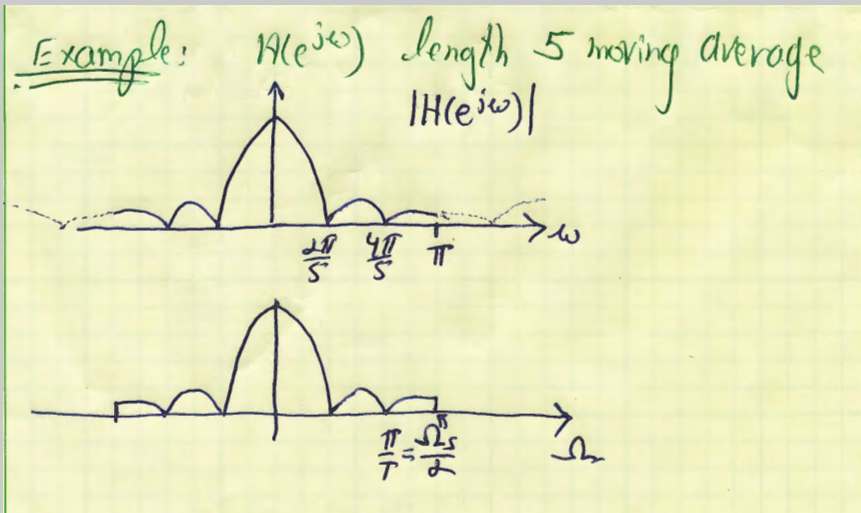 Example: H(e^jω) length 5 moving average
|H(e^jω)|
2π/5 4π/5 π ω
π/T = Ωs/2 Ω